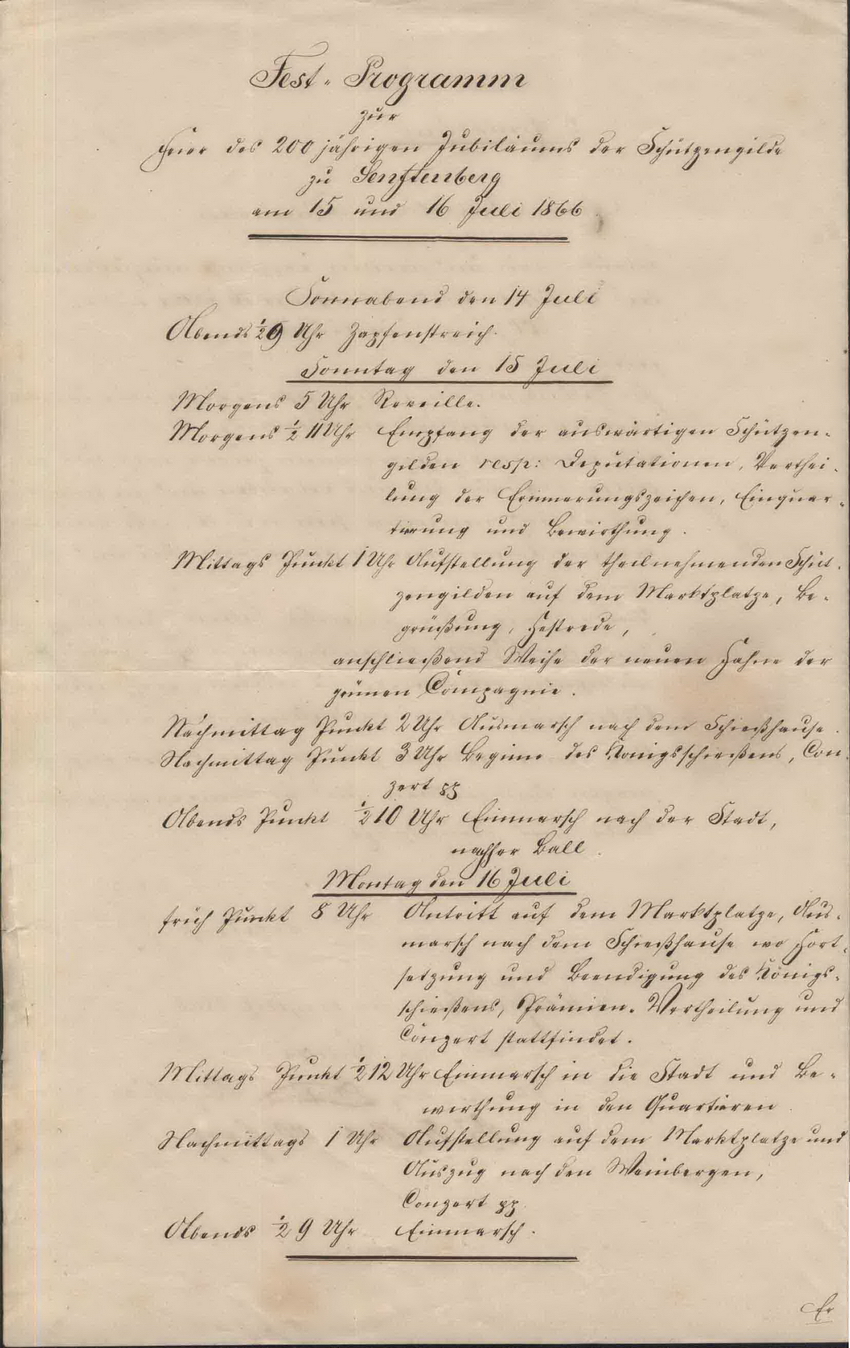 Fest-Programm
zur
Feier des 200 jährigen Jubiläums der Schützengilde
zu Senftenberg
am 15 und 16 Juli 1866
Sonnabend den 14 Juli
Abends ½9 Uhr Zapfenstreich.
Sonntag den 15 Juli
Morgens 5 Uhr Reveille.
Morgens ½ 11 Uhr Empfang der auswärtigen Schützen-
gilden resp: Deputationen, Verthei-
lung der Erinnerungszeichen, Einquar-
tierung und Bewirthung.
Mittags Punkt 1 Uhr Aufstellung der theilnehmenden Schüt-
zengilden auf dem Marktplatze, Be-
grüßung, Festrede,
anschließend Weihe der neuen Fahne der
grünen Compagnie.
Nachmittag Punkt 2 Uhr Ausmarsch nach dem Schießhause.
Nachmittag Punkt 3 Uhr Beginn des Königsschießens, Con-
zert pp
Abends Punkt ½10 Uhr Einmarsch nach der Stadt,
nachher Ball.
Montag den 16 Juli
früh Punkt 8 Uhr Antritt auf dem Marktplatze, Aus-
marsch nach dem Schießhause wo Fort-
setzung und Beendigung des Königs-
schießens, Prämien-Vertheilung und
Conzert stattfindet.
Mittags Punkt ½12 Uhr Einmarsch in die Stadt und Be-
wirthung in den Quartieren.
Nachmittags 1 Uhr Aufstellung auf dem Marktplatze und
Auszug nach den Weinbergen,
Conzert pp.
Abends ½ 9 Uhr Einmarsch.
Er